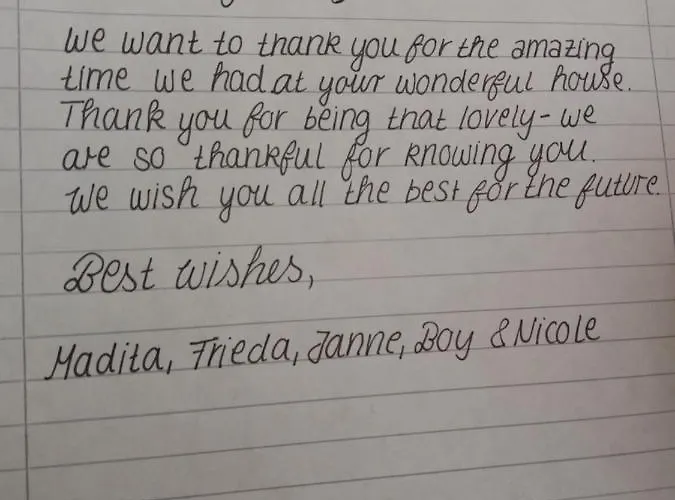 We want to thank you for the amazing
time we had at your wonderful house.
Thank you for being that lovely - we
are so thankful for knowing you.
We wish you all the best for the future.
Best wishes,
Madita, Frieda, Janne, Boy & Nicole